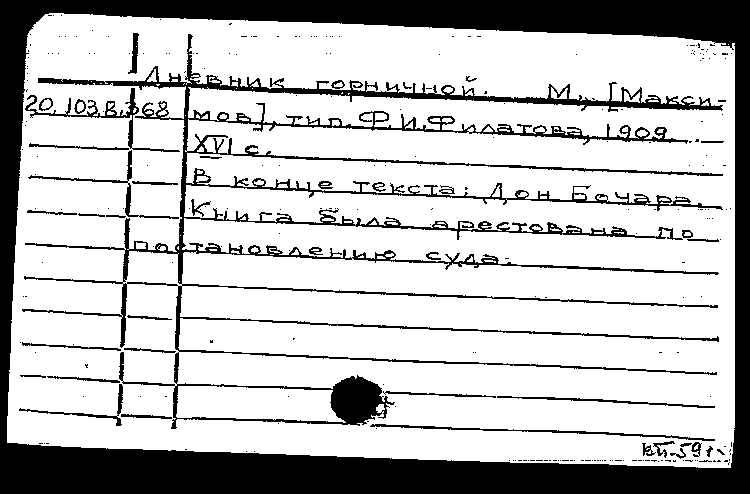 Дневник горничной. М., [Макси-
20.103.В.368 мов], тип. Ф.И.Филатова, 1909.
XVI с.
В конце текста: Дон Бочара.
Книга была арестована по
постановлению суда.